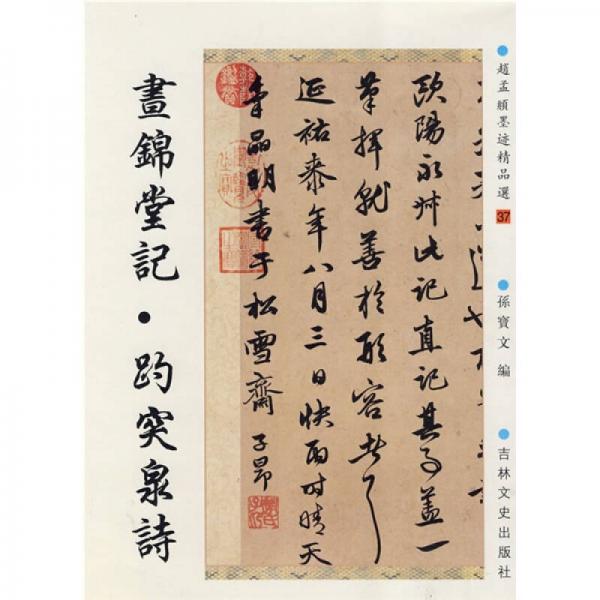 趙孟頫墨迹精品選 37
孫寶文 編
吉林文史出版社
歐陽永州此記直記其事蓋一
筆揮就善於形容者了
延祐泰年八月三日快雨時晴天
氣品明書于松雪齋 子昂
晝錦堂記·趵突泉詩